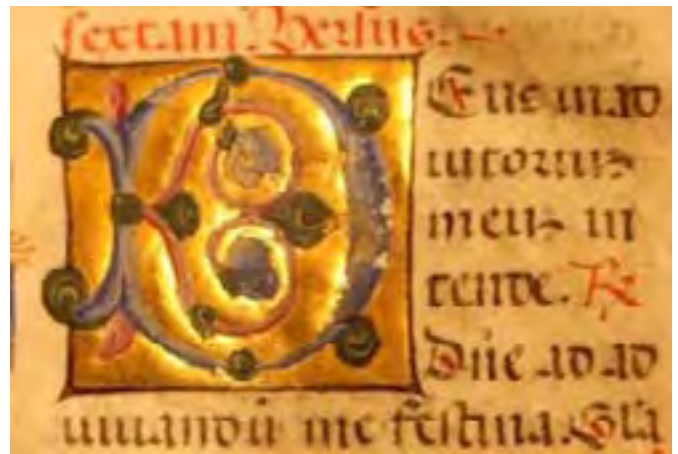 sextam. Versus.
DEus in ad
iutorium
meum in
tende. R
Dñe ad ad
iuuandũ me festina. Gl̃a